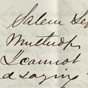 Salem Sep
Winthrop
I cannot
a saying